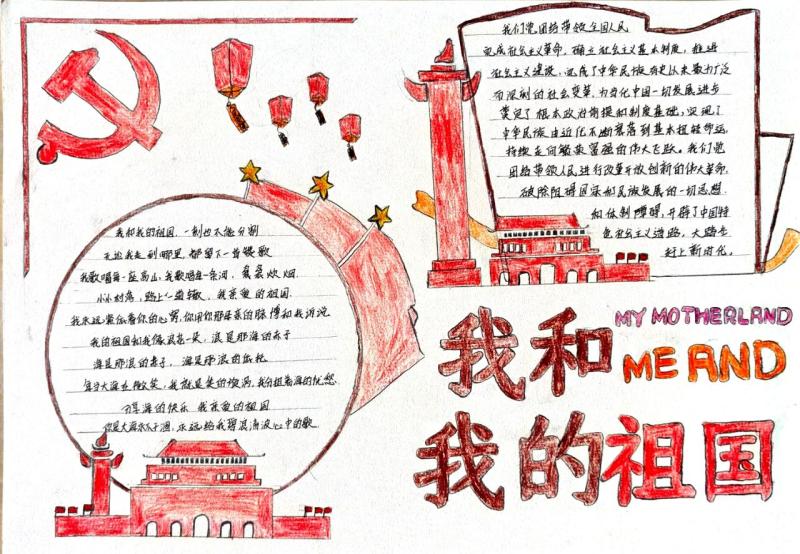 我们党团结带领全国人民
完成社会主义革命，确立社会主义基本制度，推进
社会主义建设，完成了中华民族有史以来最为广泛
而深刻的社会变革，为当代中国一切发展进步
奠定了根本政治前提和制度基础，实现了
中华民族由近代不断衰落到根本扭转命运，
持续走向繁荣富强的伟大飞跃。我们党
团结带领人民进行改革开放创新的伟大革命，
破除阻碍国家和民族发展的一切思想
和体制障碍，开辟了中国特
色社会主义道路，大踏步
赶上新时代。
我和我的祖国，一刻也不能分割
无论我走到哪里，都留下一首赞歌
我歌唱每一座高山，我歌唱每一条河，袅袅炊烟
小小村落，路上一道辙，我亲爱的祖国
我永远紧依着你的心窝，你用你那母亲的脉搏和我诉说
我的祖国和我像浪花一朵，浪是那海的赤子
海是那浪的依托
每当大海在微笑，我就是笑的旋涡，我分担着海的忧愁
分享海的快乐 我亲爱的祖国
永远给我碧浪清波心中的歌
我和 MY MOTHERLAND
ME AND
我的祖国